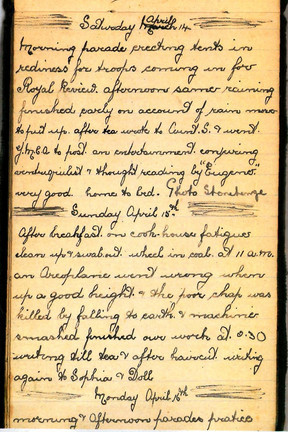 Saturday March April 14
Morning parade erecting tents in
rediness for troops coming in for
Royal Review. afternoon same raining
finished early on account of rain more
to put up. after tea wrote to Aunt. S. & went
Y.M.C.A to post an entertainment. conjuring
ventriquilist & thought reading by "Eugene"
very good. home to bed. Photo Stonehenge
Sunday April 15th
After breakfast. on cook-house fatigue
clean up & swab out. wheel in coal. at 11 a.m.
an Areoplane went wrong when
up a good height. & the poor chap was
killed by falling to earth. & machine
smashed finished our work at 3.30
writing till tea & after haircut writing
again to Sophia & Doll
Monday April 16th
morning & afternoon parades pratice